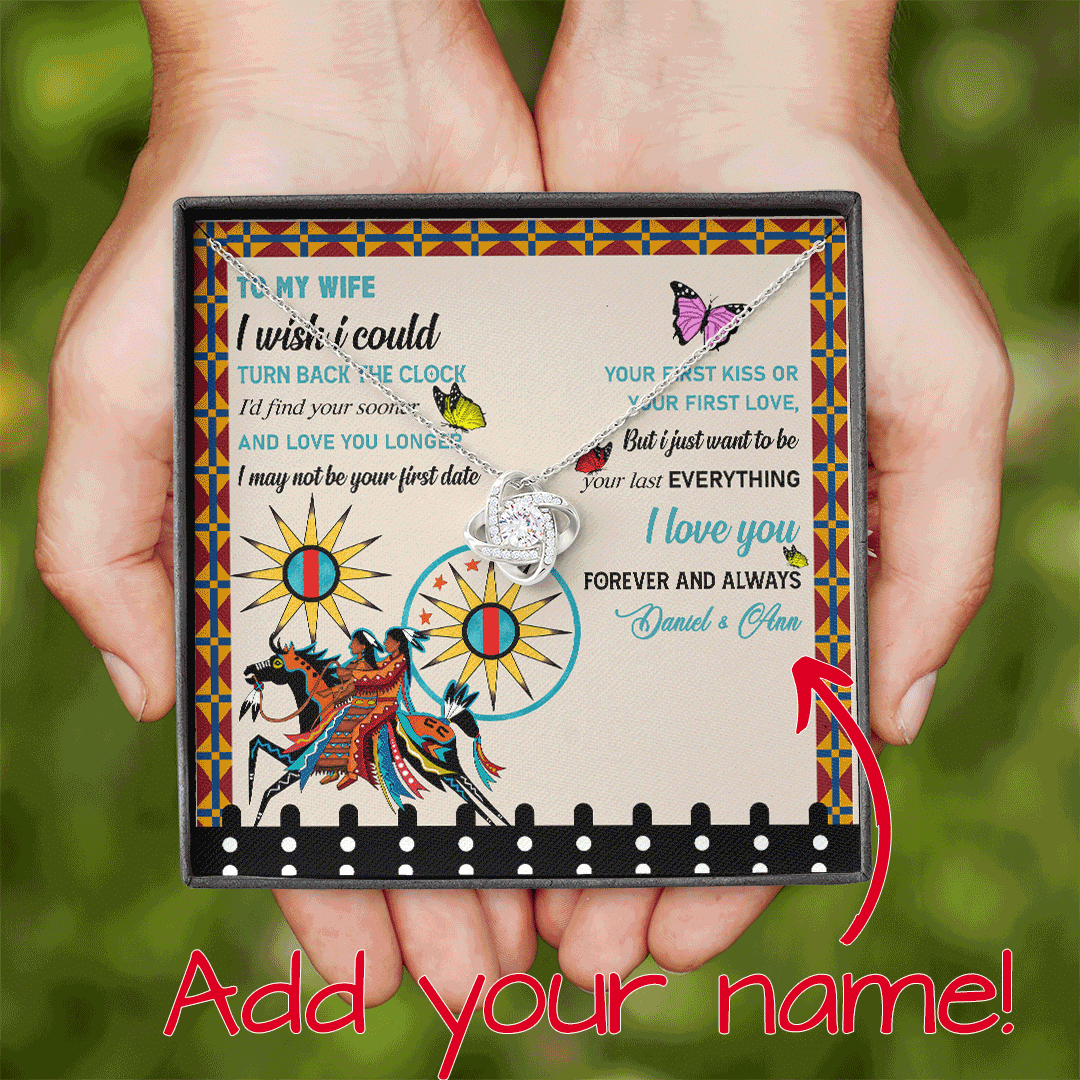 TO MY WIFE
I wish i could
TURN BACK THE CLOCK
I'd find your sooner
AND LOVE YOU LONGER
I may not be your first date
YOUR FIRST KISS OR
YOUR FIRST LOVE,
But i just want to be
your last EVERYTHING
I love you
FOREVER AND ALWAYS
Daniel & Ann
Add your name!